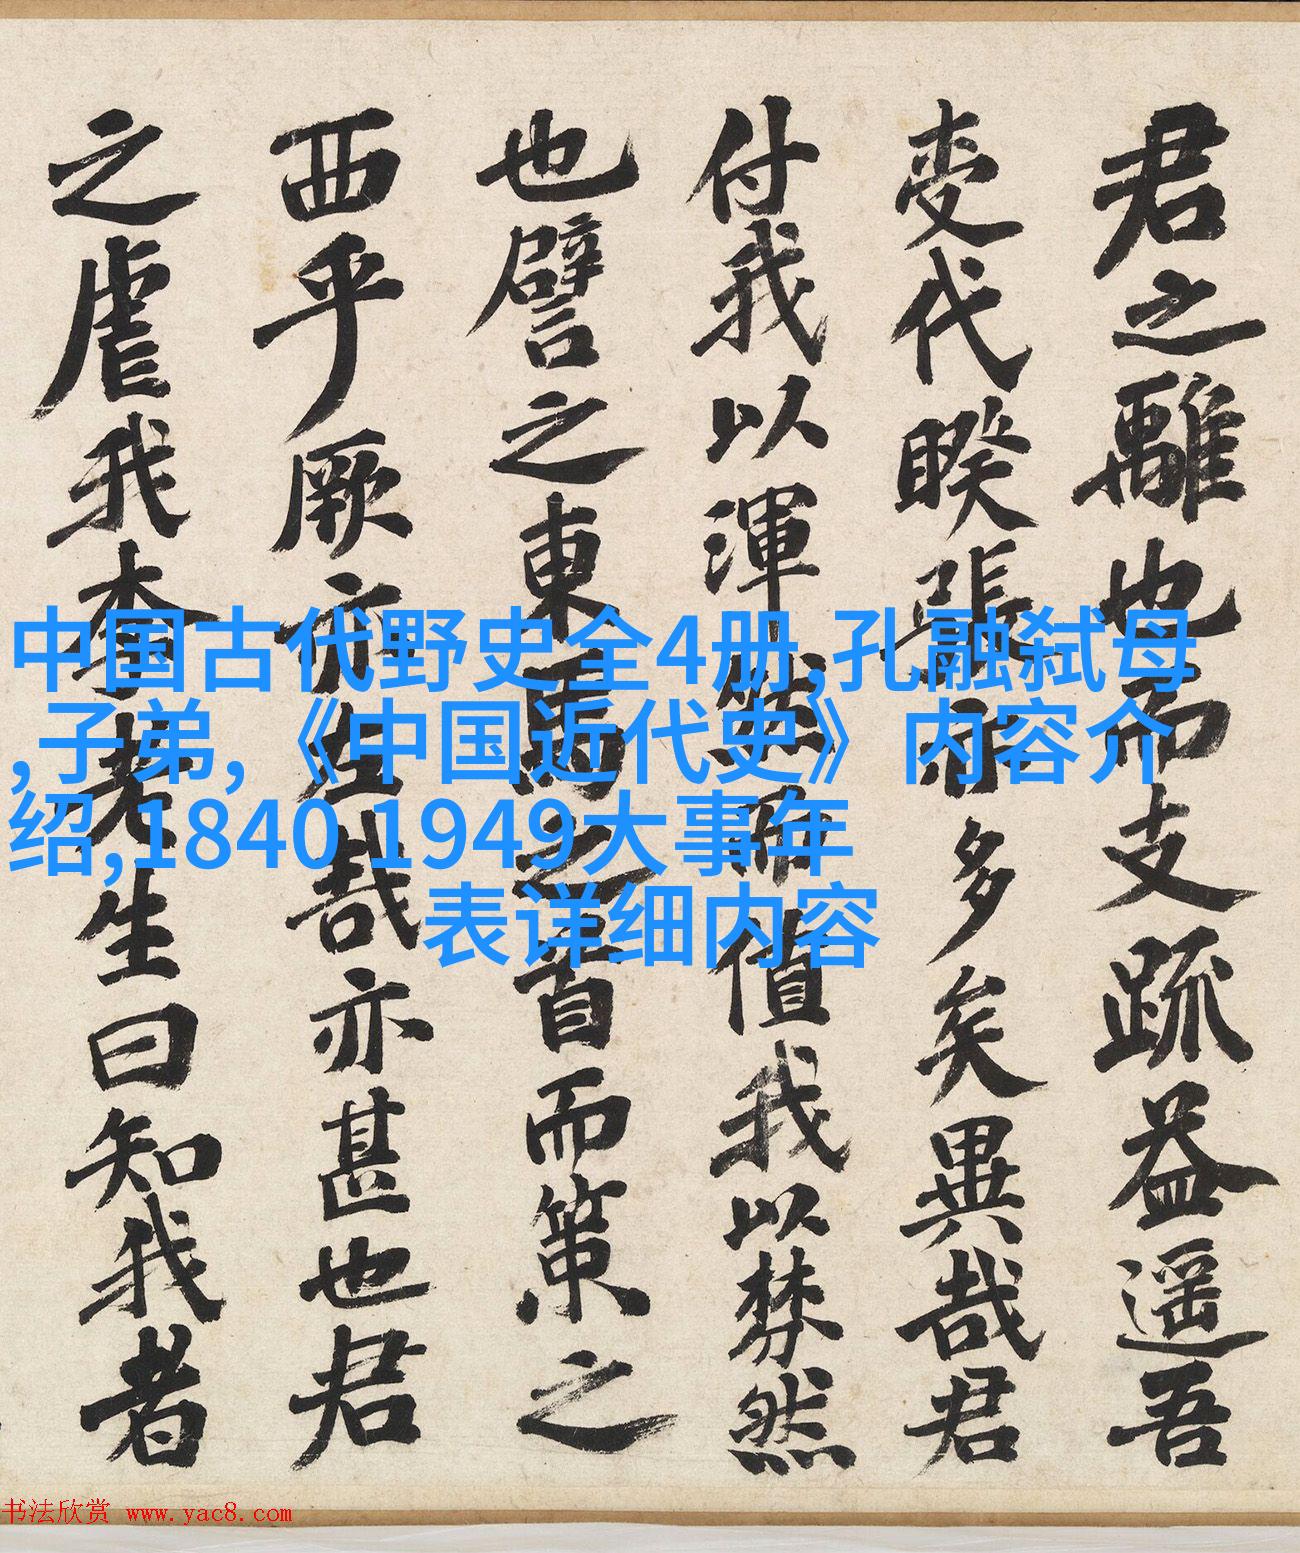 君之離也而支疏益遥吾
代睽張多矣異哉君
付我以渾然而值我以棼然
也譬之東馬之首而策之
西乎厥亦左哉亦甚也君
之虐我李老生曰知我者
中国古代野史全4册,孔融弑母
,子弟,《中国近代史》内容介
绍,1840 1949大事年
表详细内容
书法欣赏 www.yac8.com